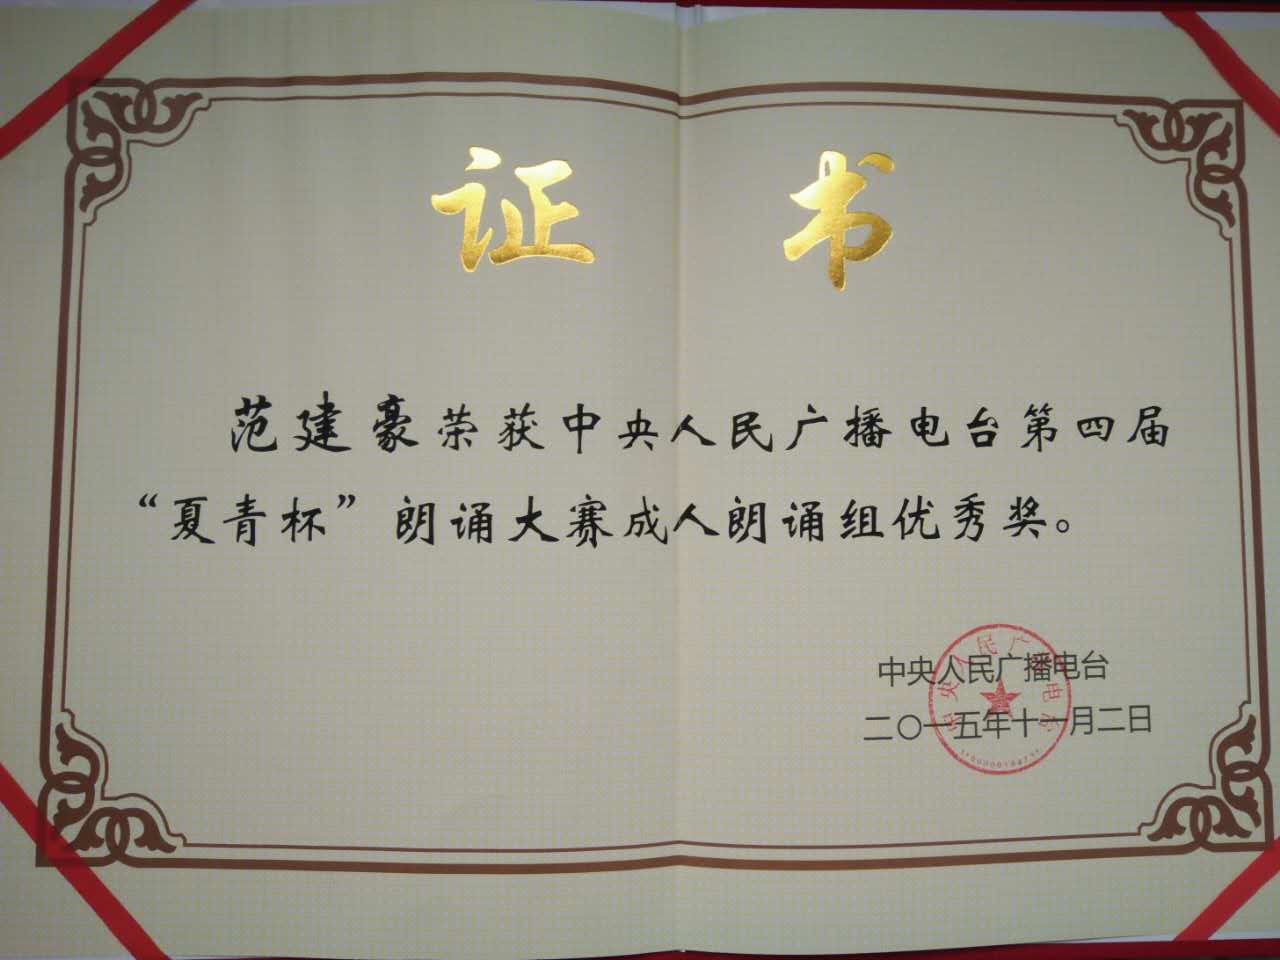 证书
范建豪荣获中央人民广播电台第四届
“夏青杯”朗诵大赛成人朗诵组优秀奖。
中央人民广播电台
二〇一五年十一月二日
中央人民广播电台